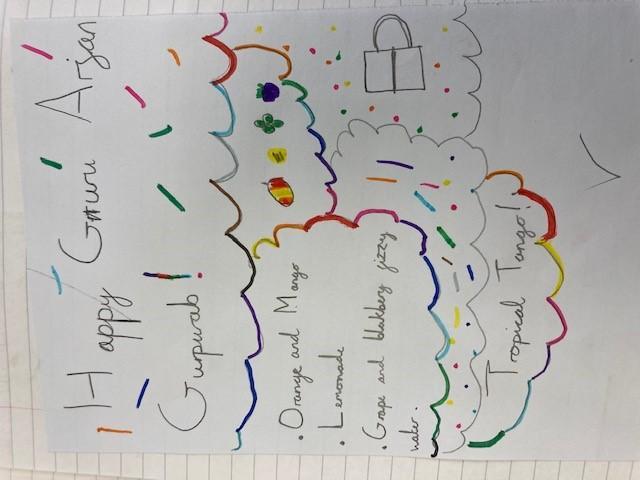 Happy Guru Arjan
Gurpurab!
• Orange and Mango
• Lemonade
• Grape and blakbery fizzy
water.
Tropical Tango!